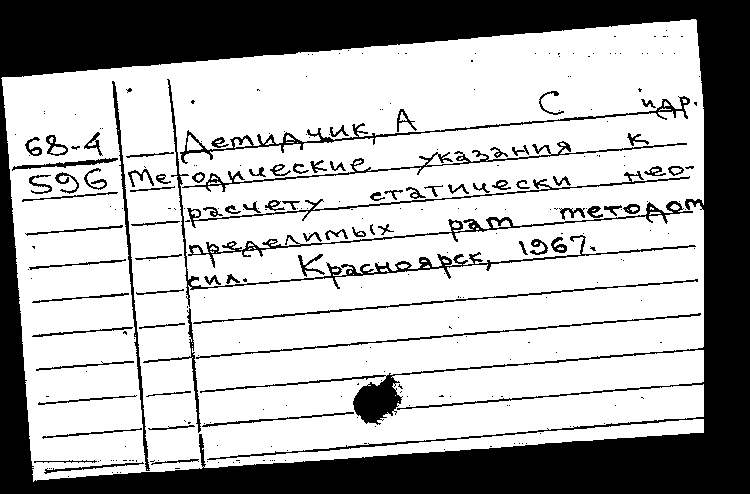 68-4 Демидчик, А С и др.
596 Методические указания к
расчету статически нео-
пределимых рам методом
сил. Красноярск, 1967.